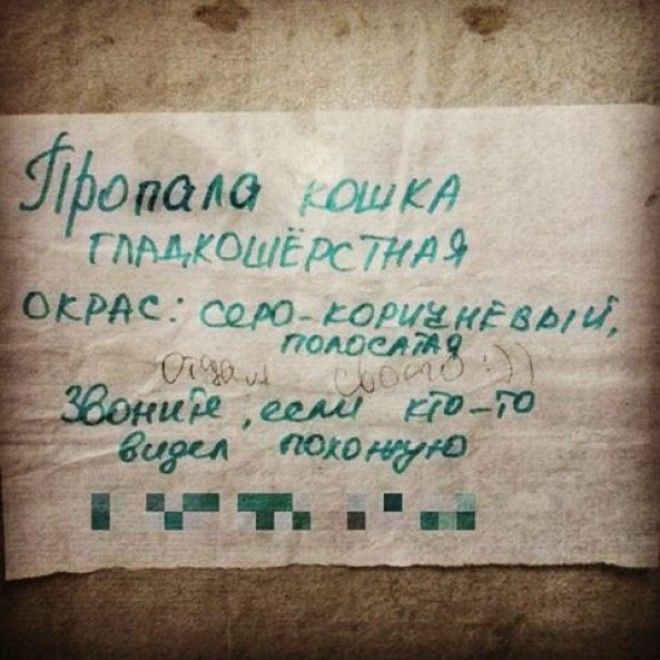 Пропала кошка
гладкошёрстная
окрас: серо-коричневый,
полосатая
Отдам своего :))
Звоните, если кто-то
видел похожую